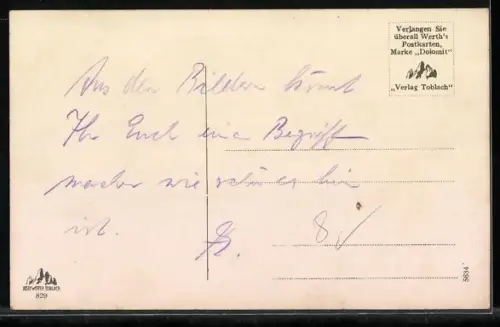 Verlangen Sie
überall Werth's
Postkarten,
Marke „Dolomit"
„Verlag Toblach"
Aus den Bildern könnt
Ihr Euch einen Begriff
machen wie schön es hier
ist.
8
829
5634